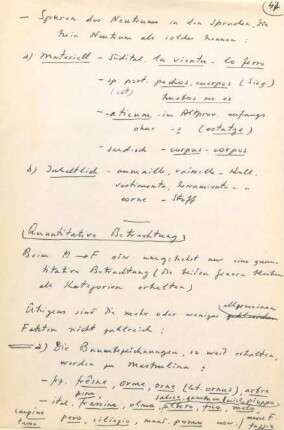 47
- Spuren des Neutrums in den Sprachen, die
kein Neutrum als solches kennen:
a) Materiell - Südital. la vientu - lo ferro
- sp. port. pechos, cuerpos (Sing.)
(alt) huebos me es
- -aticum - im Altprov. anfangs
ohne -s (estatge)
- sardisch - corpus - corpos
b) Inhaltlich - aumaille, ramaille - Koll.
vestimenta, ferramienta - "
corne - Stoff
Quantitative Betrachtung
Beim M → F oder umgekehrt nur eine quan-
titative Betrachtung (die beiden Genera bleiben
als Kategorien erhalten)
Übrigens sind die mehr oder weniger allgemeinen
Fakten nicht zahlreich:
a) Die Baumbezeichnungen, so weit erhalten,
werden zu Maskulina:
- frz. frêne, orme, orne (lt. ornus), arbre
- ital. frassino, olmo, albero, pino, melo,
pero, ciliegio,